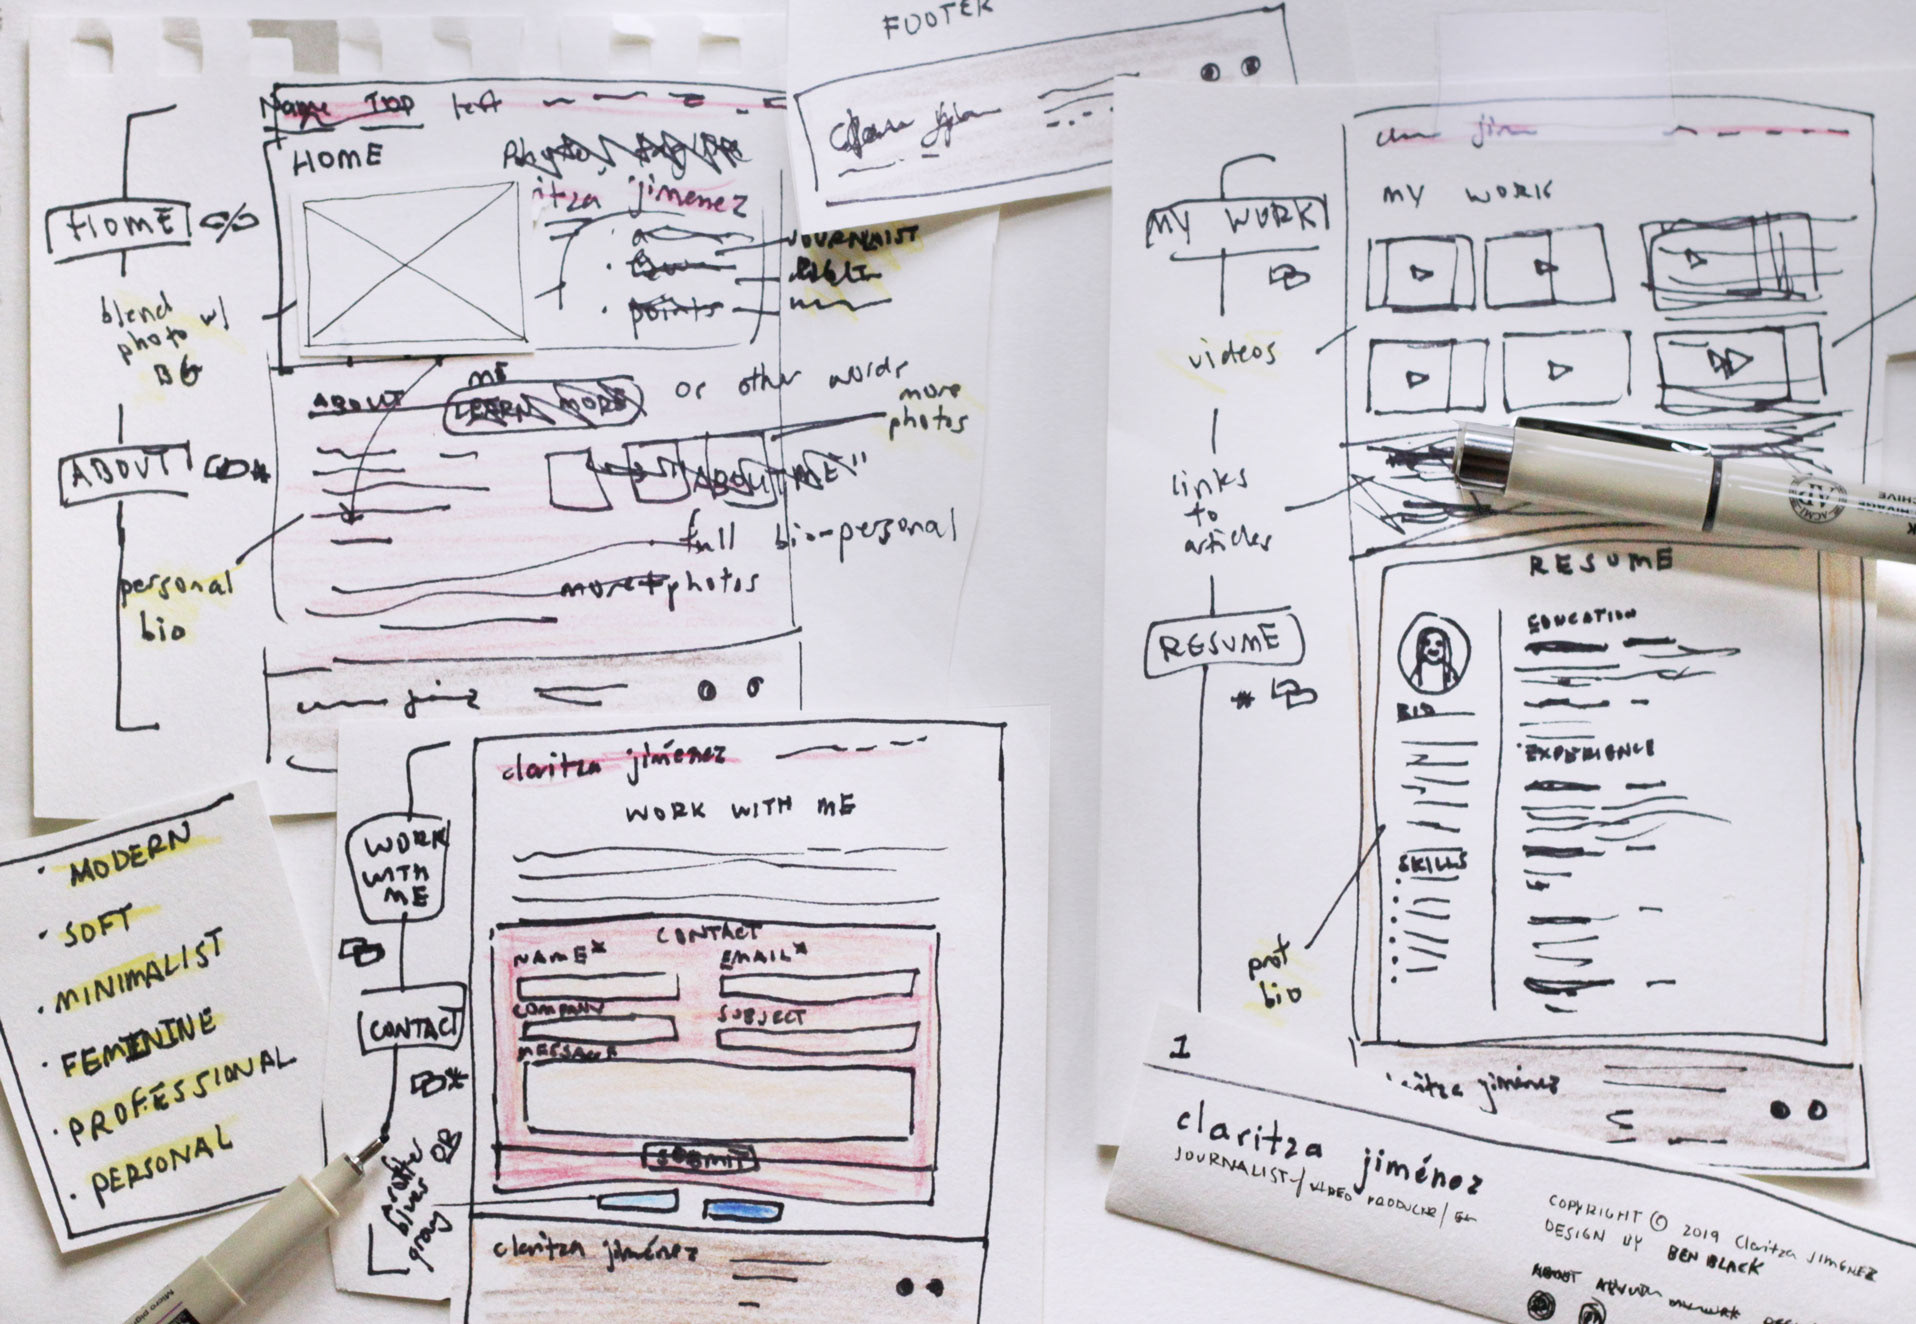 FOOTER
Name TOP text
HOME
itza jimenez
JOURNALIST
points
HOME
blend
photo w/
BG
ABOUT
ME
LEARN MORE
or other words
more
photos
ABOUT
"ABOUT ME"
full bio-personal
more + photos
personal
bio
• MODERN
• SOFT
• MINIMALIST
• FEMININE
• PROFESSIONAL
• PERSONAL
claritza jiménez
WORK WITH ME
WORK
WITH
ME
CONTACT
CONTACT
NAME*
EMAIL*
COMPANY
SUBJECT
MESSAGE
SUBMIT
OR
another
blues
gray
claritza jiménez
MY WORK
MY WORK
videos
links
to
articles
RESUME
RESUME
EDUCATION
BIO
EXPERIENCE
SKILLS
prof
bio
claritza jiménez
1
claritza jiménez
JOURNALIST/VIDEO PRODUCER/
COPYRIGHT © 2019 Claritza JIMENEZ
DESIGN BY BEN BLACK
ABOUT